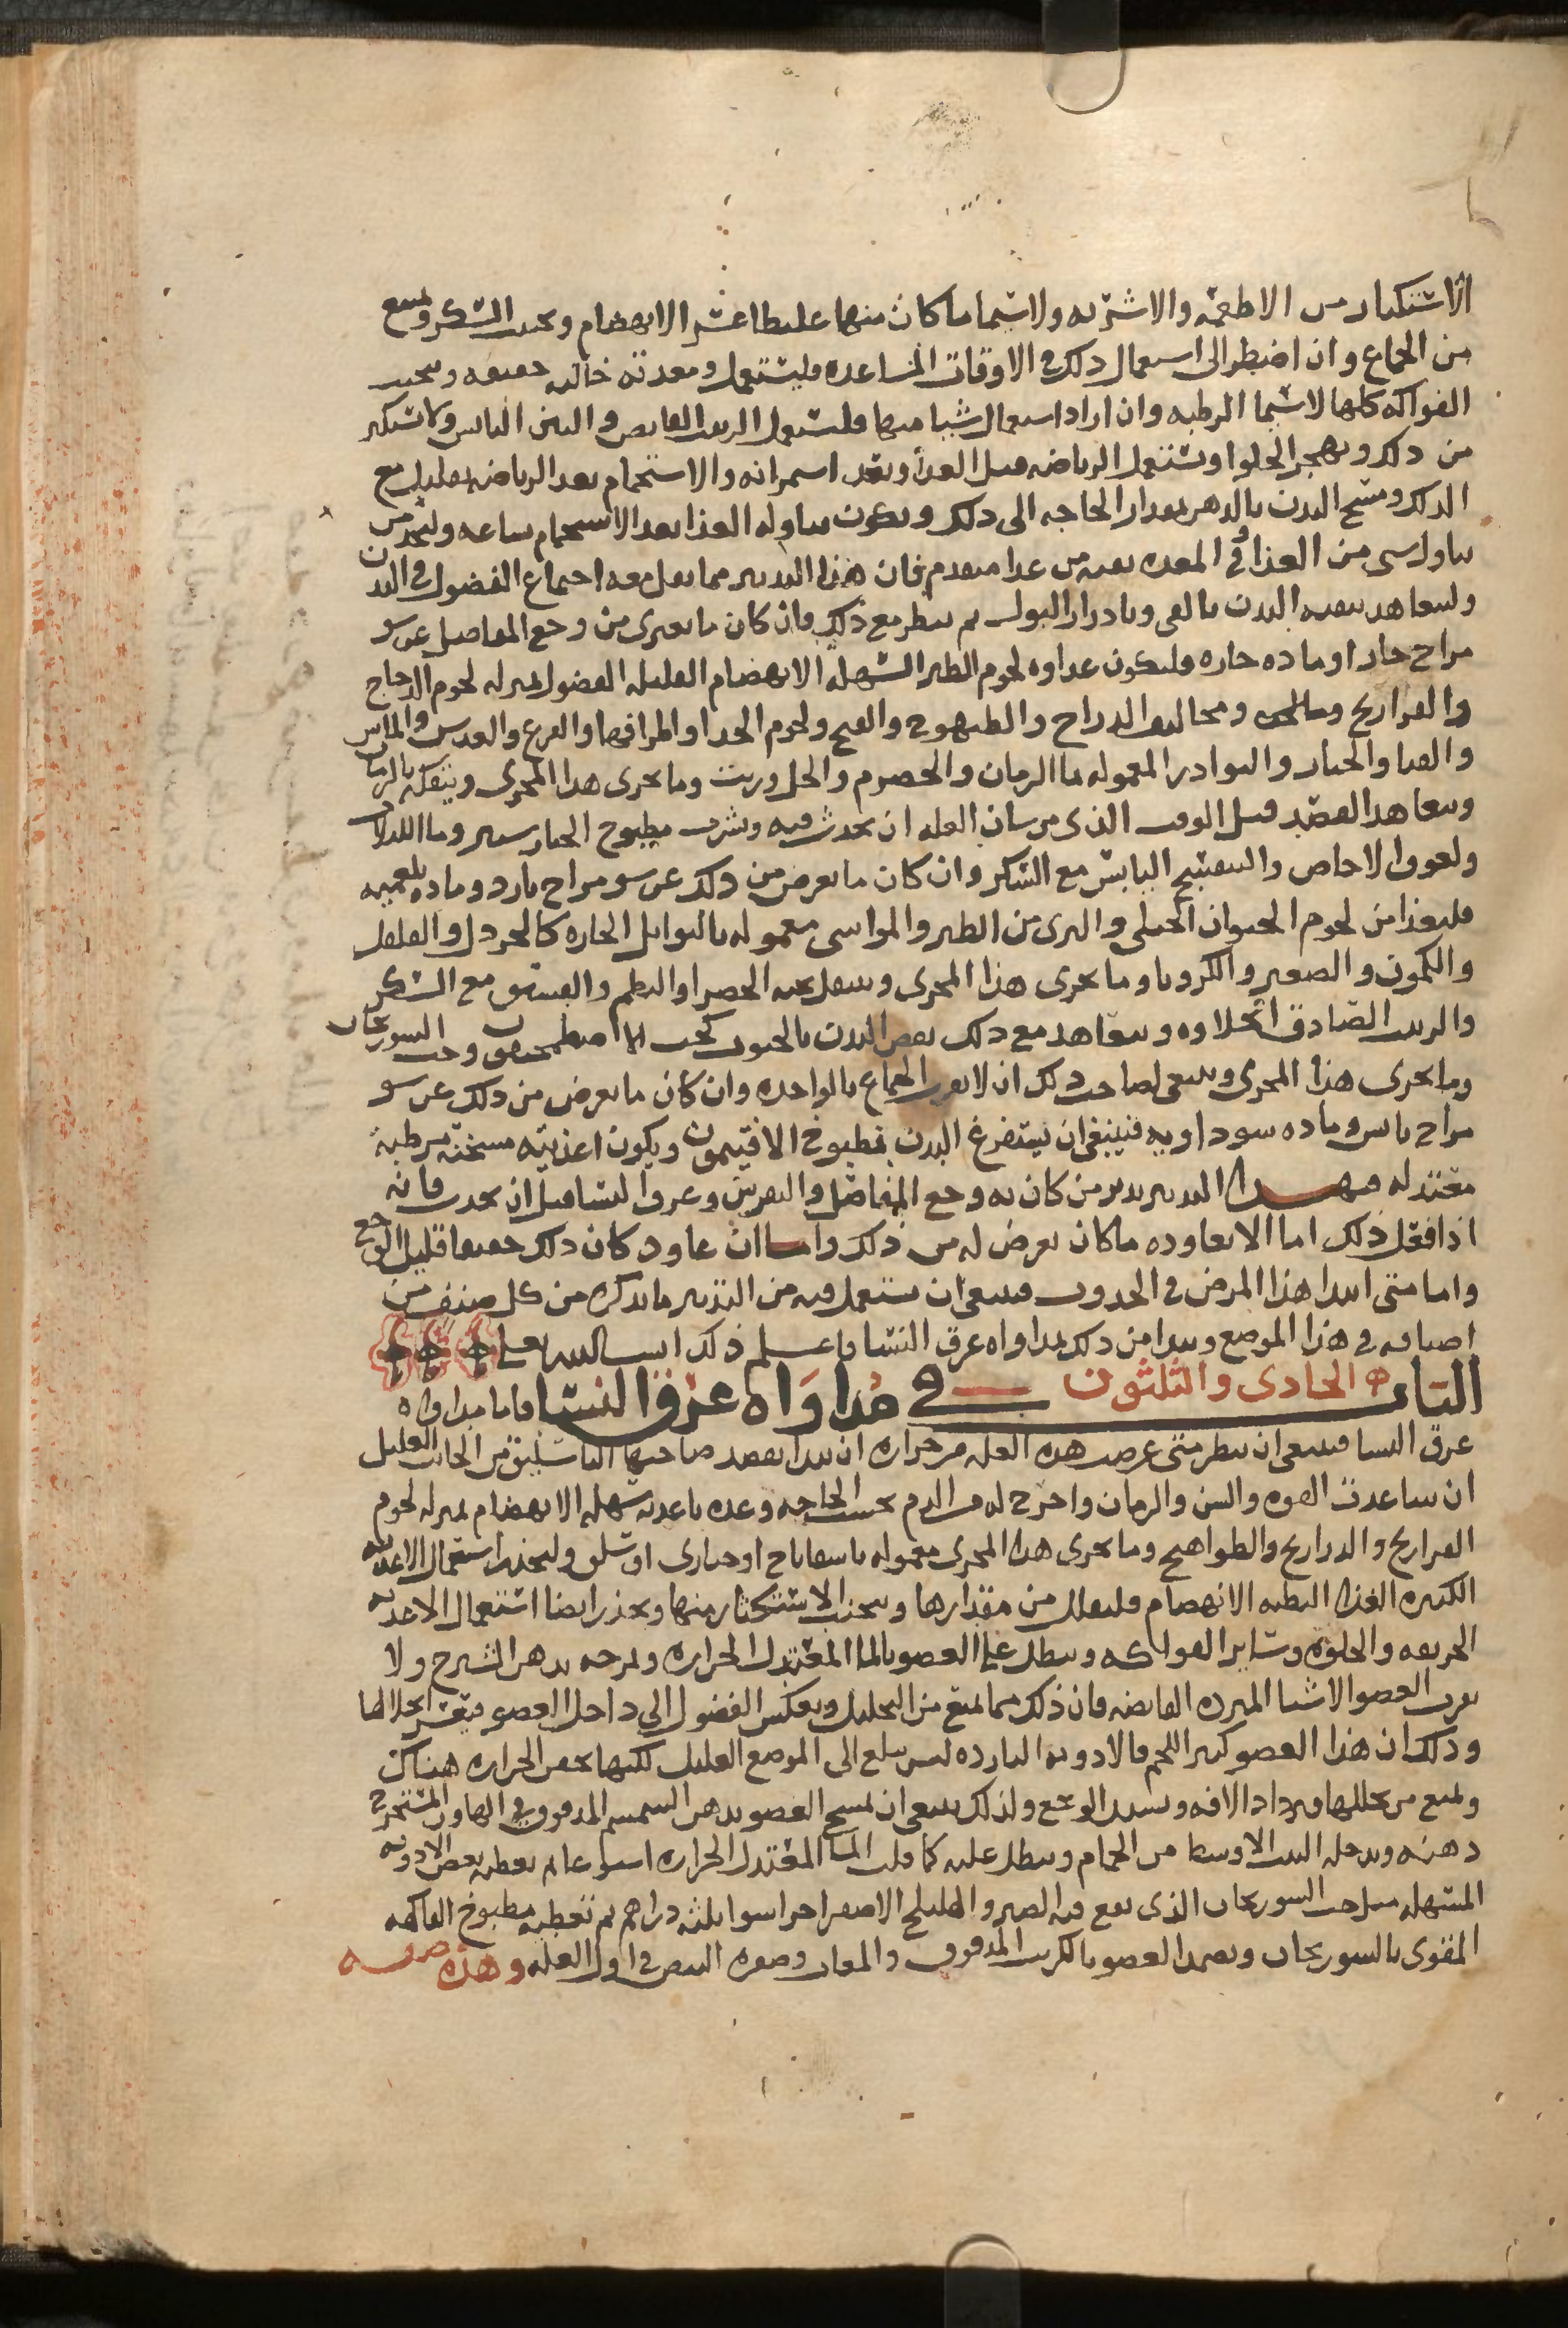 الاستكثار من الاطعمه والاشربه ولاسيما ما كان منها غليظا عسر الانهضام ويجنب السكر ويمنع
من الجماع وان اضطر الى استعمال ذلك في الاوقات المتباعده فليستعمل ومعدته خاليه خفيفه ويتجنب
الفواكه كلها لاسيما الرطبه وان اراد استعمال شيا منها فليستعمل الزبيب القابض والتين اليابس ولا يستكثر
من ذلك ويهجر الحلوا ويستعمل الرياضه قبل الغذا وبعد استمرائه والاستحمام بعد الرياضه بقليل مع
الدلك ومسح البدن بالدهن بمقدار الحاجه الى ذلك ويكون تناوله الغذا بعد الاستحمام بساعه وليحذر من
تناول شي من الغذا وفي المعده بقيه من غدا متقدم فان هذا التدبير مما يقل معه اجتماع الفضول في البدن
وليتعاهد بنقيه البدن بالقي وبادرار البول ثم ينظر مع ذلك فان كان ما يعتري من وجع المفاصل عن سو
مزاج حار او ماده حاره فليكون غداوه لحوم الطير السهله الانهضام القليله الفضول بمنزله لحوم الدجاج
والفراريج ومخاليف الدراج والطيهوج والقبج ولحوم الجدا واطرافها والقرع والعدس والماش
والقثا والخيار والبوادر المعموله بما الرمان والحصرم والخل وزيت وما يجري هذا المجرى ويتفكه بالرمان
ويتعاهد الفصد قبل الوقت الذي من شان العله ان تحدث فيه وشرب مطبوخ الخيارشنبر وما اللبلاب
ولعوق الاجاص والبنفسج اليابس مع السكر وان كان ما يعرض من ذلك عن سو مزاج بارد وماده بلغميه
فليغذا من لحوم الحيوان الجبلي والبري من الطير والمواشي معموله بالتوابل الحاره كالخردل والفلفل
والكمون والصعتر والكرويا وما يجري هذا المجرى وينتقل بحبه الخضرا والبطم والفستق مع السكر
والزبيب الصادق الحلاوه ويتعاهد مع ذلك نقص البدن بالحبوب كحب الاصطمخيقون وحب السورنجان
وما يجري هذا المجرى وينبغي لصاحب ذلك ان لا يقرب الجماع بالواحده وان كان ما يعرض من ذلك عن سو
مزاج يابس وماده سوداويه فينبغي ان يستفرغ البدن بمطبوخ الافتيمون ويكون اغذيته مسخنه مرطبة
معتدله فبهذا التدبير يدبر من كان به وجع المفاصل والنقرس وعرق النسا قبل ان يحدث فانه
اذا فعل ذلك اما الا يعاوده ما كان يعرض له من ذلك واما ان عاود كان ذلك خفيفا قليل الوجع
واما متى ابتدا هذا المرض في الحدوث فينبغي ان يستعمل فيه من التدبير ما نذكره من كل صنف من
اصنافه في هذا الموضع ونبدا من ذلك بمداواه عرق النسا فاعلم ذلك ان شا الله تعالى
الباب الحادى والثلثون في مداواه عرق النسا فاما مداواه
عرق النسا فينبغي ان ينظر متى عرضت هذه العله من حراره ان يبدا بفصد صاحبها الباسليق من الجانب العليل
ان ساعدت القوه والسن والزمان واخرج له من الدم بحسب الحاجه وغده باغديه سهله الانهضام بمنزله لحوم
الفراريج والدراريج والطواهيج وما يجري هذا المجرى معموله باسفاناخ او خباري او سلق وليحذر استعمال الاغديه
الكثيره الغذا البطيه الانهضام وليقلل من مقدارها ويتجنب الاستكثار منها ويحذر ايضا استعمال الاغديه
الحريفه والحلوه وساير الفواكه وينطل على العضو بالما المعتدل الحراره ويمرخه بدهن الشيرج ولا
يقرب العضو الاشيا المبرده القابضه فان ذلك مما يمنع من التحليل ويعكس الفضول الى داخل العضو فيعسر انحلالها
وذلك ان هذا العضو كثير اللحم فالادويه البارده ليس تبلغ الى الموضع العليل لكنها تحقن الحراره هناك
وتمنع من تحللها فيزداد الافه ويشتد الوجع ولذلك ينبغي ان يمسح العضو بدهن السمسم المدقوق في الهاون المستخرج
دهنه ويدخله البيت الاوسط من الحمام وينطل عليه كما قلت الما المعتدل الحراره اسبوعا ثم يعطيه بعض الادويه
المسهله مثل حب السورنجان الذي يقع فيه الصبر والهليلج الاصفر اجزا سوا ثلثه دراهم ثم تعطيه مطبوخ الفاكهه
المقوى بالسورنجان ويضمد العضو بالكرنب المدقوق والمغاث وصفره البيض في اول العله وهذه صفه